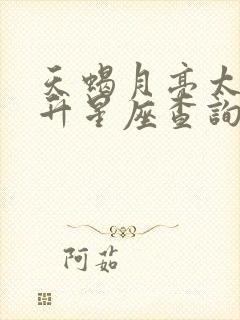 天蝎月亮太
升星座查詢
阿茹